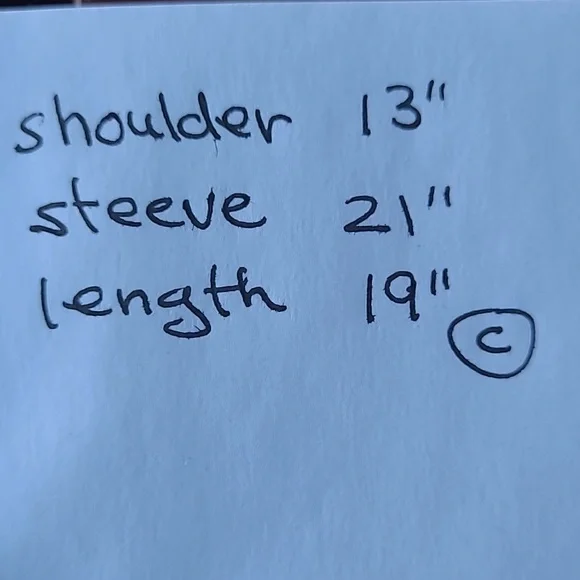 shoulder 13"
steeve 21"
length 19"
C